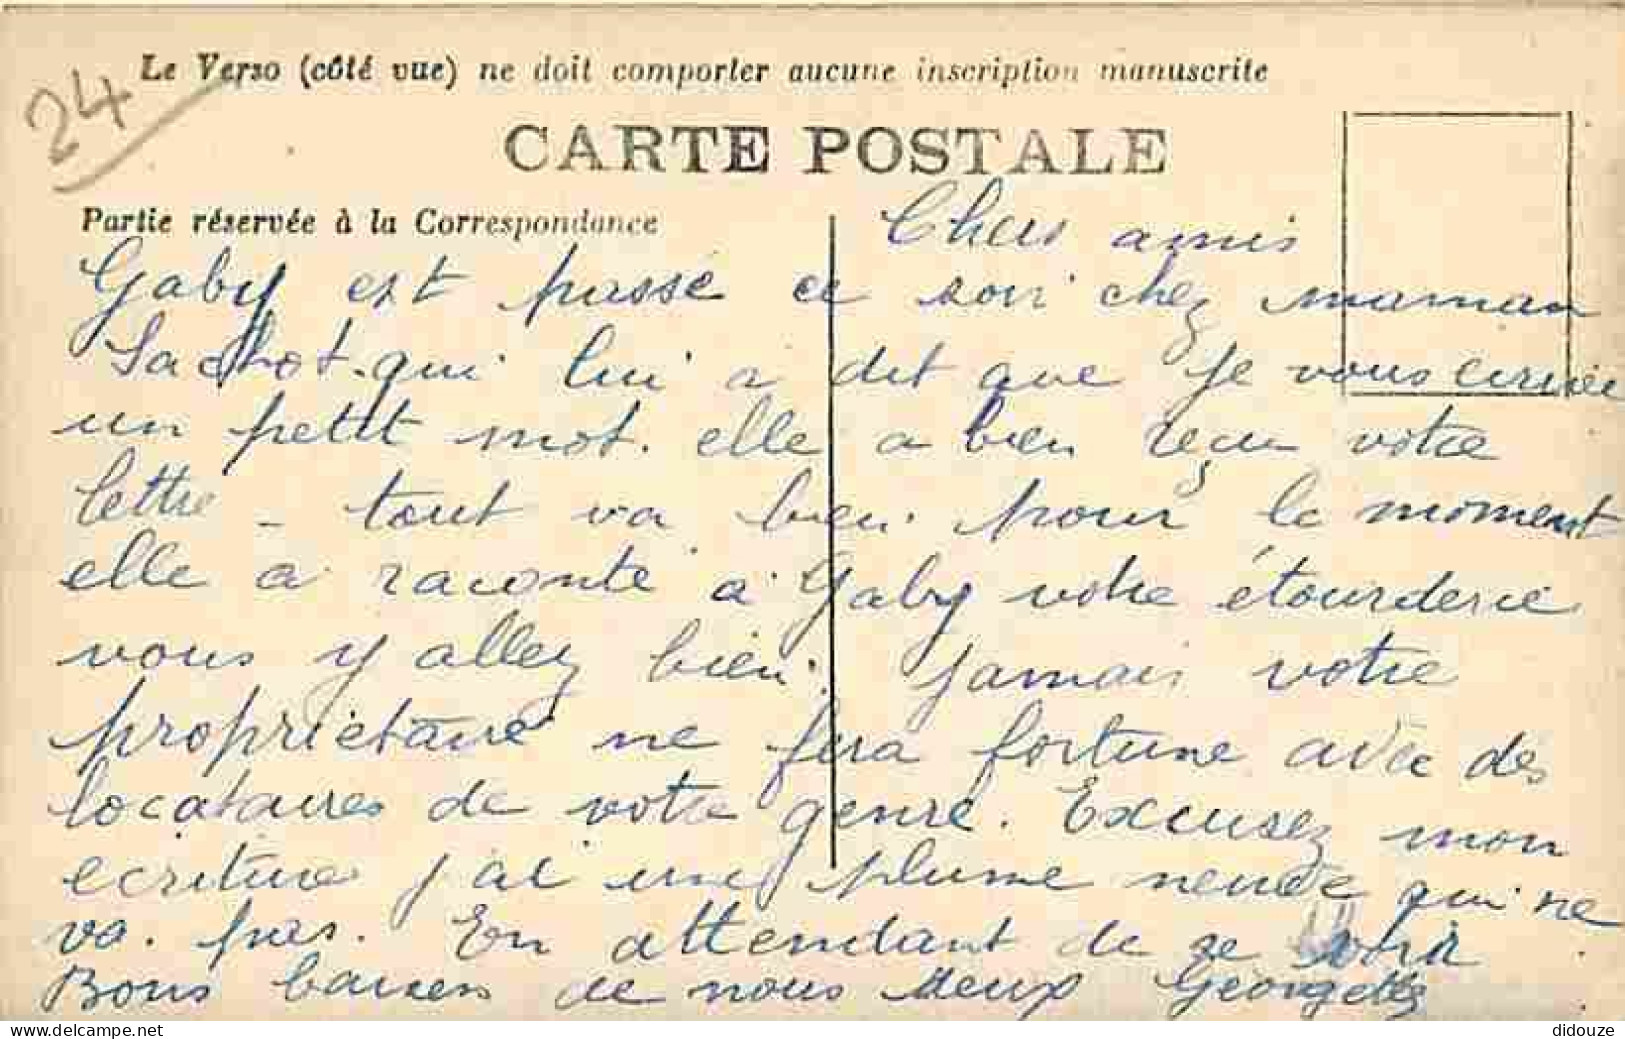 Le Verso (côté vue) ne doit comporter aucune inscription manuscrite
24
CARTE POSTALE
Partie réservée à la Correspondance
Chers amis
Gaby est passé ce soir chez maman
Sachot. qui lui a dit que je vous
un petit mot. elle a bien reçu votre
lettre - tout va bien. pour le moment
elle a raconté à Gaby votre étourderie
vous y allez bien. jamais votre
propriétaire ne fera fortune avec des
locataires de votre genre. Excusez mon
ecriture j'ai une plume neuve qui ne
va. pas. En attendant de se voir
Bons baisers de nous deux Georgette
didouze @ delcampe.net